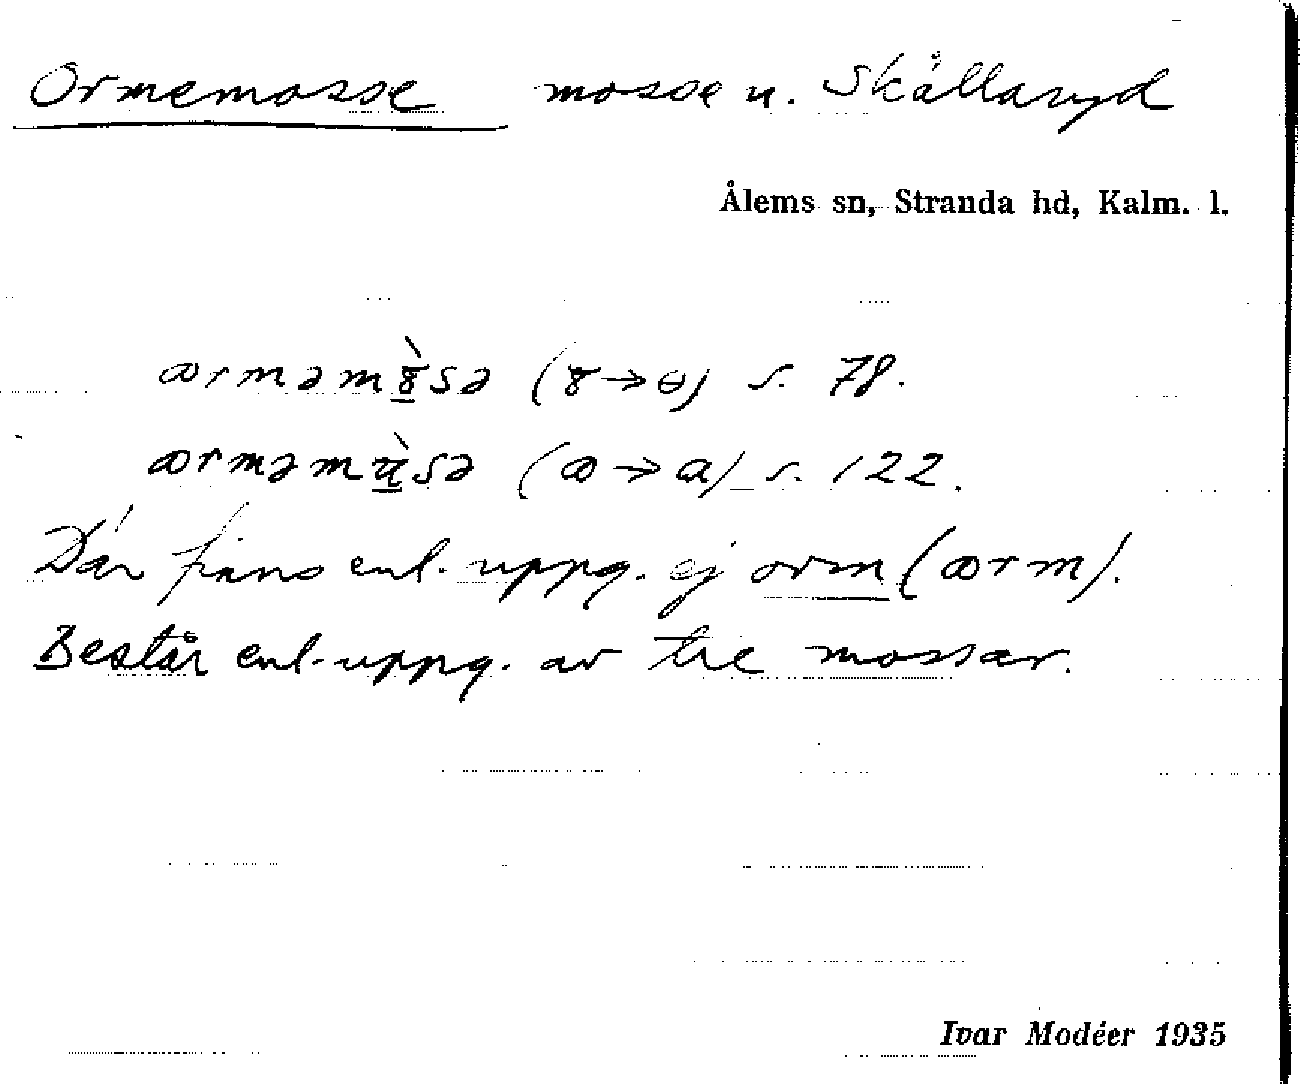 Ormemosse mosse u. Skållaryd
Ålems sn, Stranda hd, Kalm. l.
orməmɤ̀sə (ɤ→ɵ) s. 78.
orməmùsə (ꝏ→a) s. 122.
Där finns enl. uppg. ej orm (ꝏrm).
Består enl. uppg. av tre mossar.
Ivar Modéer 1935